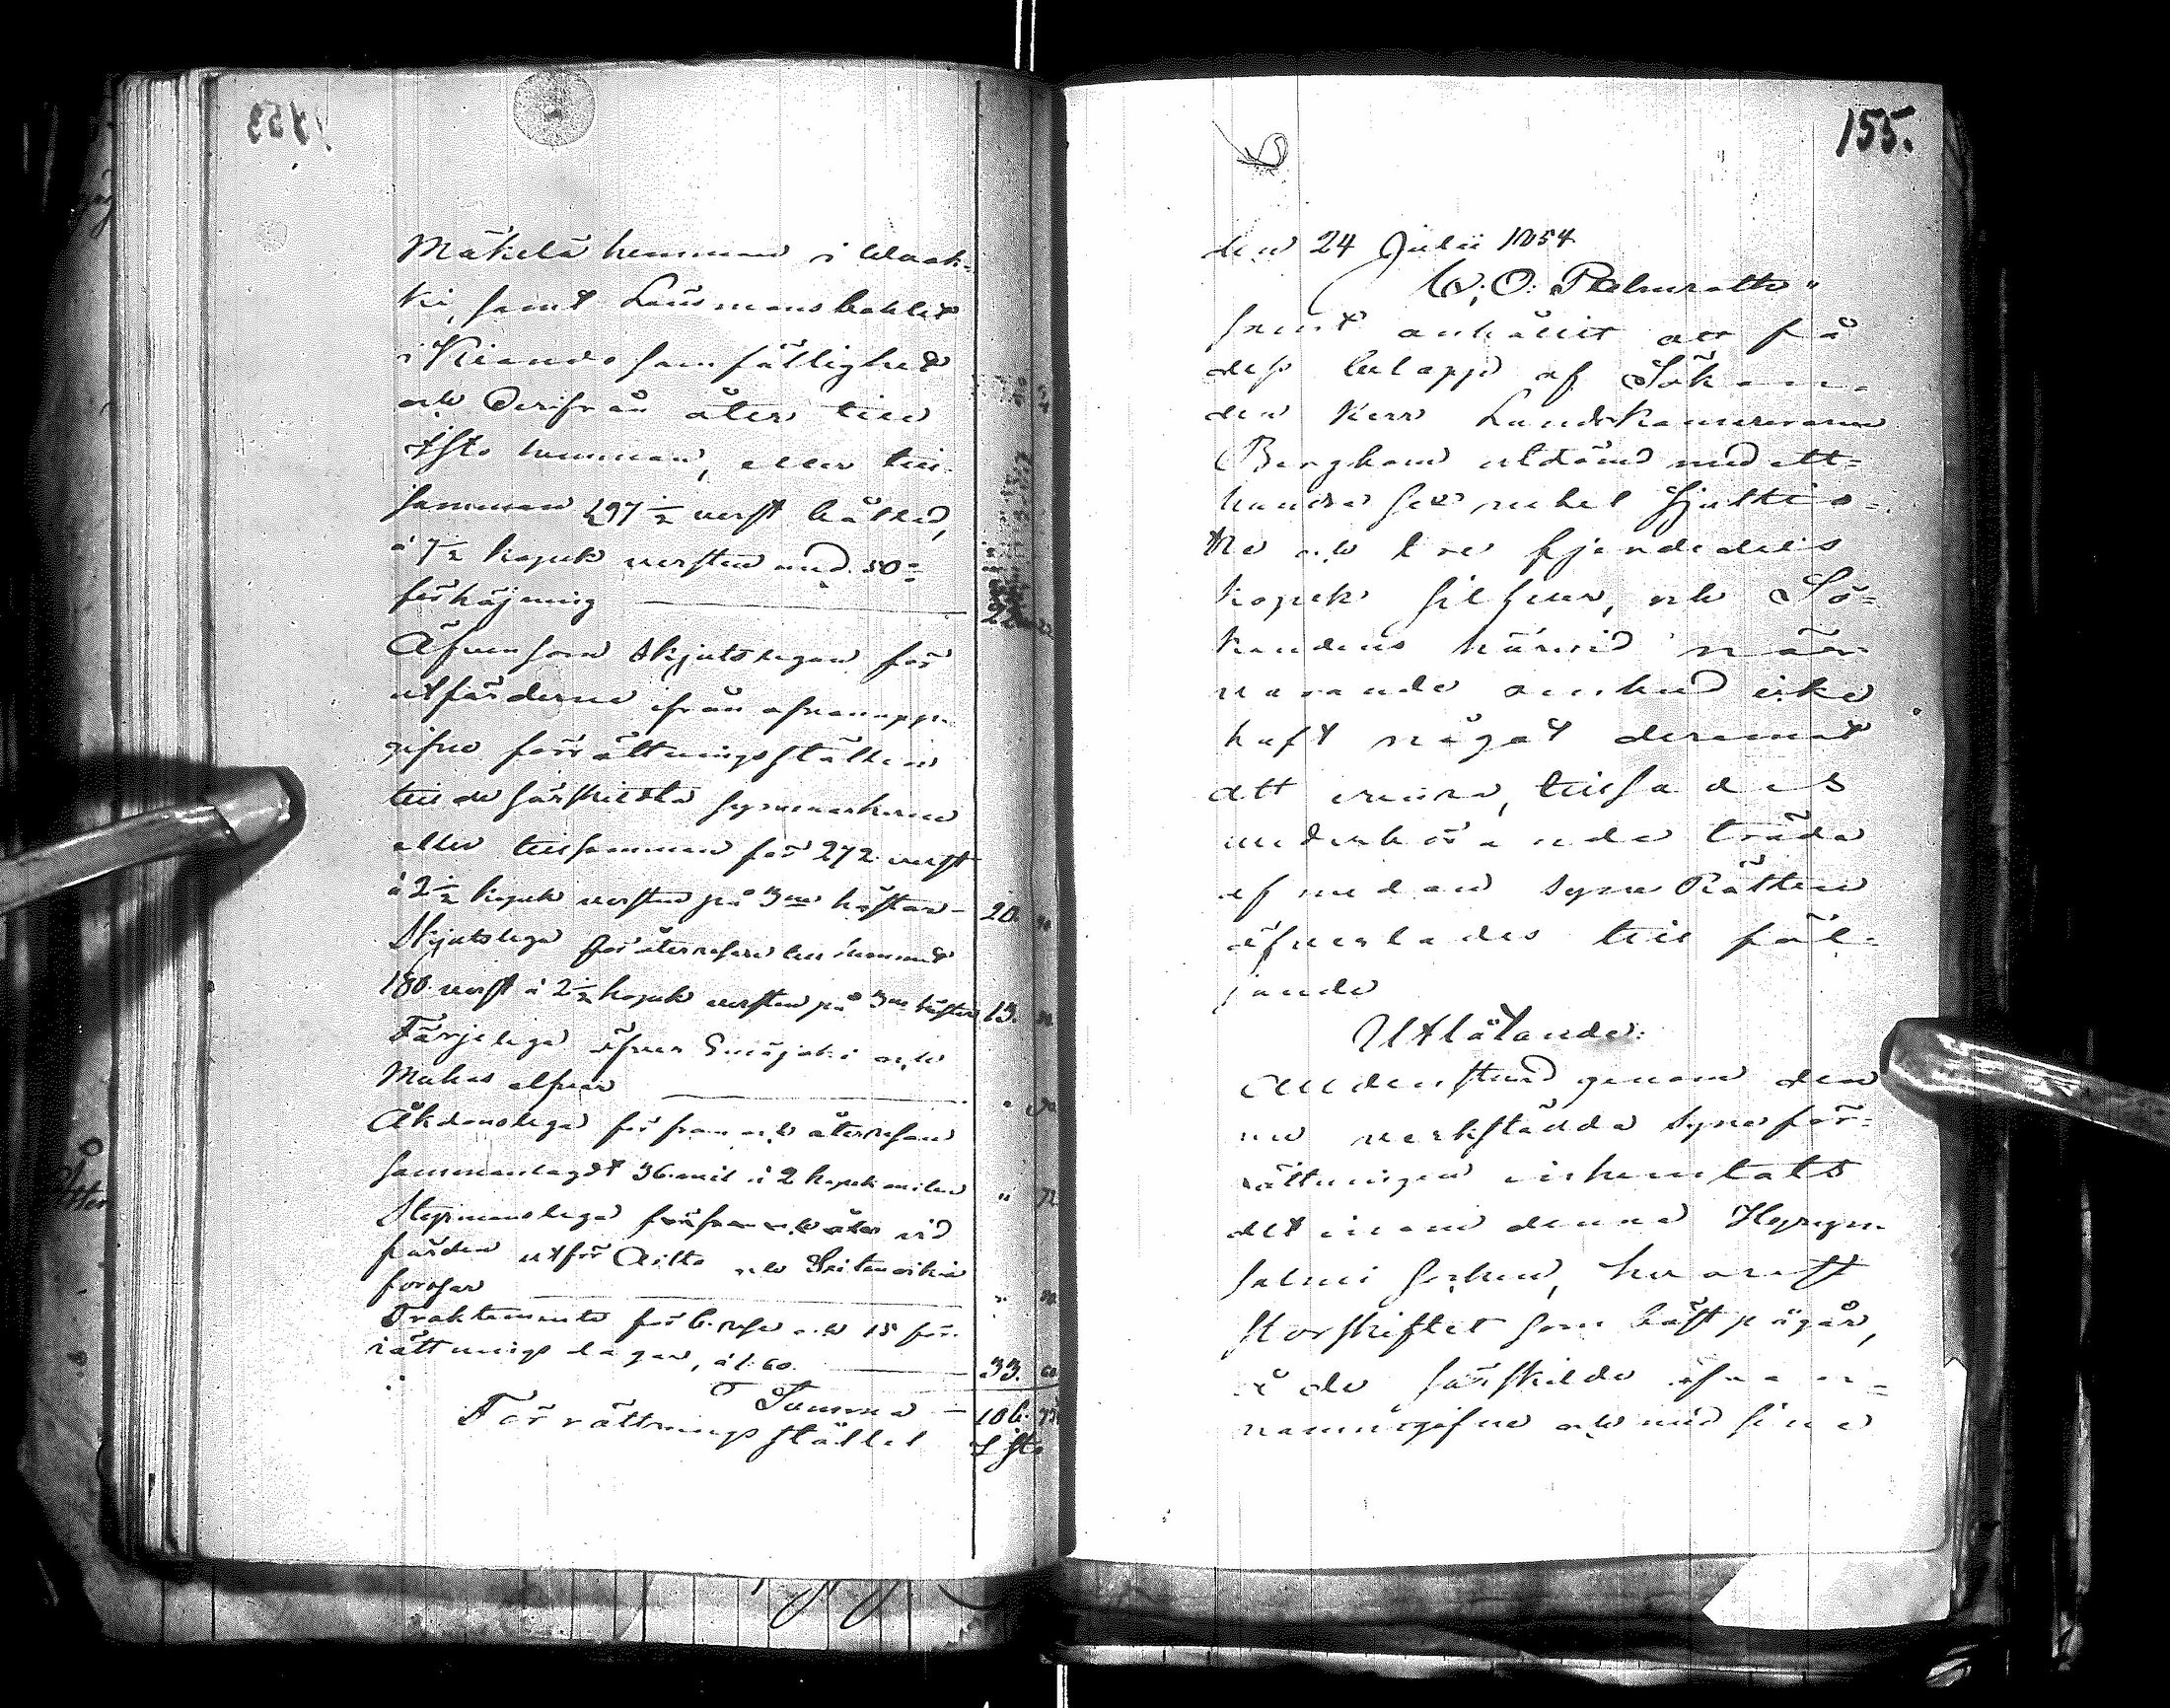 155.
Mäkelä hemman i Waak-
ki, samt Länsmansbohlet
i Kiando samfällighet
och Derifrån åter till
Isto hemman, eller till-
samman 297 1/2 verst båtled,
à 7 1/2 kopek versten med 50:
förhöjning 22
Äfvensom skjutslegan för
utfärderne ifrån ofvanupp-
gifne förrättningsställen
till de särskilda synemarkerne
eller tillsamman för 272 verst
à 2 1/2 kopek versten på 3ne hästar - 20.
Skjutslega för återresan till hemmet
180 verst à 2 1/2 kopek versten på 3ne hästar 13.
Färjelega öfver Emäjoki och
Muhos elfvar
Åkdonslega för fram och återresan
sammanlagdt 36 mil à 2 kopek milen " 72
Styrmanslega för fram och åter vid
färden utför Aitto och Seitenoikia
forsar
Traktemente för 6. rese och 15 för-
rättningsdagar, à 1. 60. 33. 60
Summa - 106.
Förrättningsstället Isto
den 24 Julii 1854
W; O: Palmroth "
samt anhållit att få
dess belopp af Sökan-
den Herr Landskamreraren
Bergbom utdömd med ett-
hundra sex rubel sjuttio-
tre och tre fjerdedels
kopek silfver, och Sö-
kandens härvid när-
varande ombud icke
haft något deremot
att erinra, tillsades
vederbörande träda
af medan Syne Rätten
öfverlades till föl-
jande
Utlåtande:
Alldenstund genom den
nu verkstälda Syneför-
rättningen inhemtats
att inom denna Hyryn-
salmi socken, hvarest
Storskiftet som bäst pågår,
å de särskilde ofvan-
namngifne och med sine